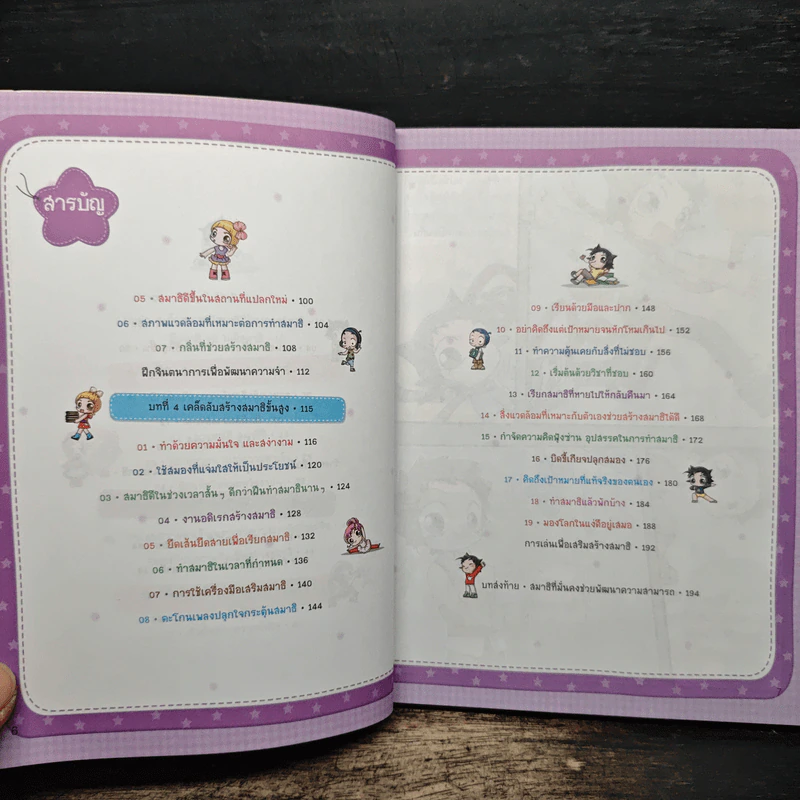 สารบัญ
05 • สมาธิดีขึ้นในสถานที่แปลกใหม่ • 100
06 • สภาพแวดล้อมที่เหมาะต่อการทำสมาธิ • 104
07 • กลิ่นที่ช่วยสร้างสมาธิ • 108
ฝึกจินตนาการเพื่อพัฒนาความจำ • 112
บทที่ 4 เคล็ดลับสร้างสมาธิขั้นสูง • 115
01 • ทำด้วยความมั่นใจ และสง่างาม • 116
02 • ใช้สมองที่แจ่มใสให้เป็นประโยชน์ • 120
03 • สมาธิดีในช่วงเวลาสั้นๆ ดีกว่าฝืนทำสมาธินานๆ • 124
04 • งานอดิเรกสร้างสมาธิ • 128
05 • ยืดเส้นยืดสายเพื่อเรียกสมาธิ • 132
06 • ทำสมาธิในเวลาที่กำหนด • 136
07 • การใช้เครื่องมือเสริมสมาธิ • 140
08 • ตะโกนเพลงปลุกใจกระตุ้นสมาธิ • 144
6
09 • เรียนด้วยมือและปาก • 148
10 • อย่าคิดถึงแต่เป้าหมายจนหักโหมเกินไป • 152
11 • ทำความคุ้นเคยกับสิ่งที่ไม่ชอบ • 156
12 • เริ่มต้นด้วยวิชาที่ชอบ • 160
13 • เรียกสมาธิที่หายไปให้กลับคืนมา • 164
14 • สิ่งแวดล้อมที่เหมาะกับตัวเองช่วยสร้างสมาธิได้ดี • 168
15 • กำจัดความคิดฟุ้งซ่าน อุปสรรคในการทำสมาธิ • 172
16 • บิดขี้เกียจปลุกสมอง • 176
17 • คิดถึงเป้าหมายที่แท้จริงของตนเอง • 180
18 • ทำสมาธิแล้วพักบ้าง • 184
19 • มองโลกในแง่ดีอยู่เสมอ • 188
การเล่นเพื่อเสริมสร้างสมาธิ • 192
บทส่งท้าย • สมาธิที่มั่นคงช่วยพัฒนาความสามารถ • 194
7